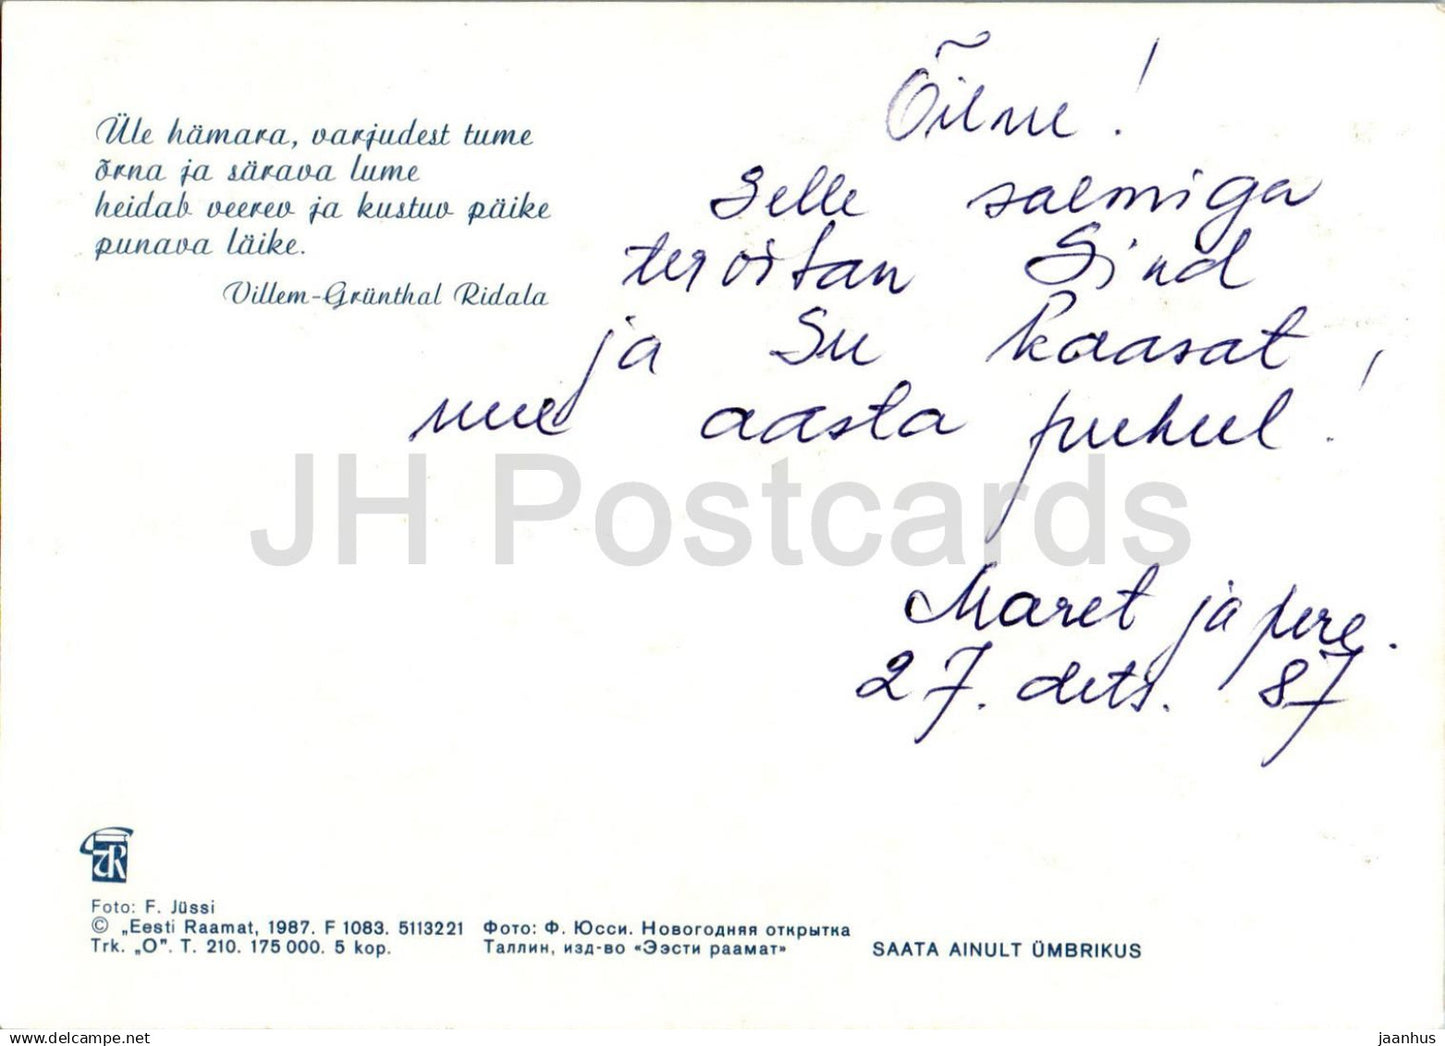 Üle hämara, varjudest tume
õrna ja särava lume
heidab veerev ja kustuv päike
punava läike.
Villem-Grünthal Ridala
Õilme!
Selle salmiga
tervitan Sind
ja Su kaasat
uue aasta puhul!
Maret ja pere.
27. dets. 87
JH Postcards
Foto: F. Jüssi
© „Eesti Raamat, 1987. F 1083. 5113221
Trk. „O". T. 210. 175 000. 5 kop.
Фото: Ф. Юсси. Новогодняя открытка
Таллин, изд-во «Ээсти раамат»
SAATA AINULT ÜMBRIKUS
delcampe.net
jaanhus